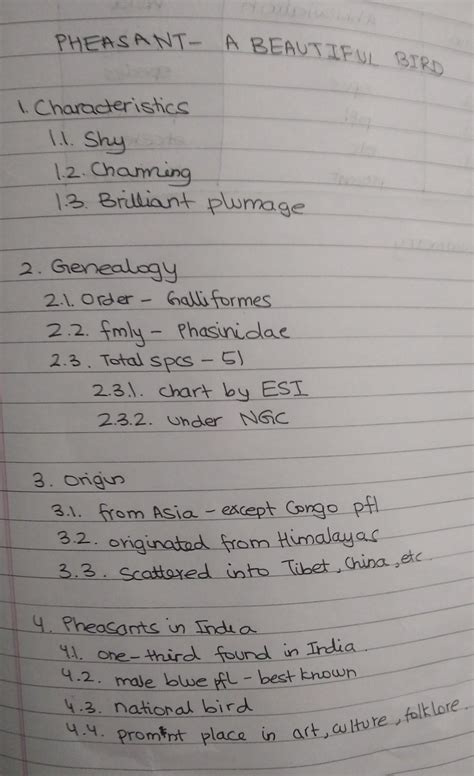 PHEASANT- A BEAUTIFUL BIRD
1. Characteristics
1.1. Shy
1.2. Charming
1.3. Brilliant plumage
2. Genealogy
2.1. Order - Galliformes
2.2. fmly - Phasinidae
2.3. Total spcs - 51
2.3.1. chart by ESI
2.3.2. under NGC
3. Origin
3.1. from Asia - except Congo pfl
3.2. originated from Himalayas
3.3. scattered into Tibet, China, etc
4. Pheasants in India
4.1. one-third found in India
4.2. male blue pfl - best known
4.3. national bird
4.4. promt place in art, culture, folklore.